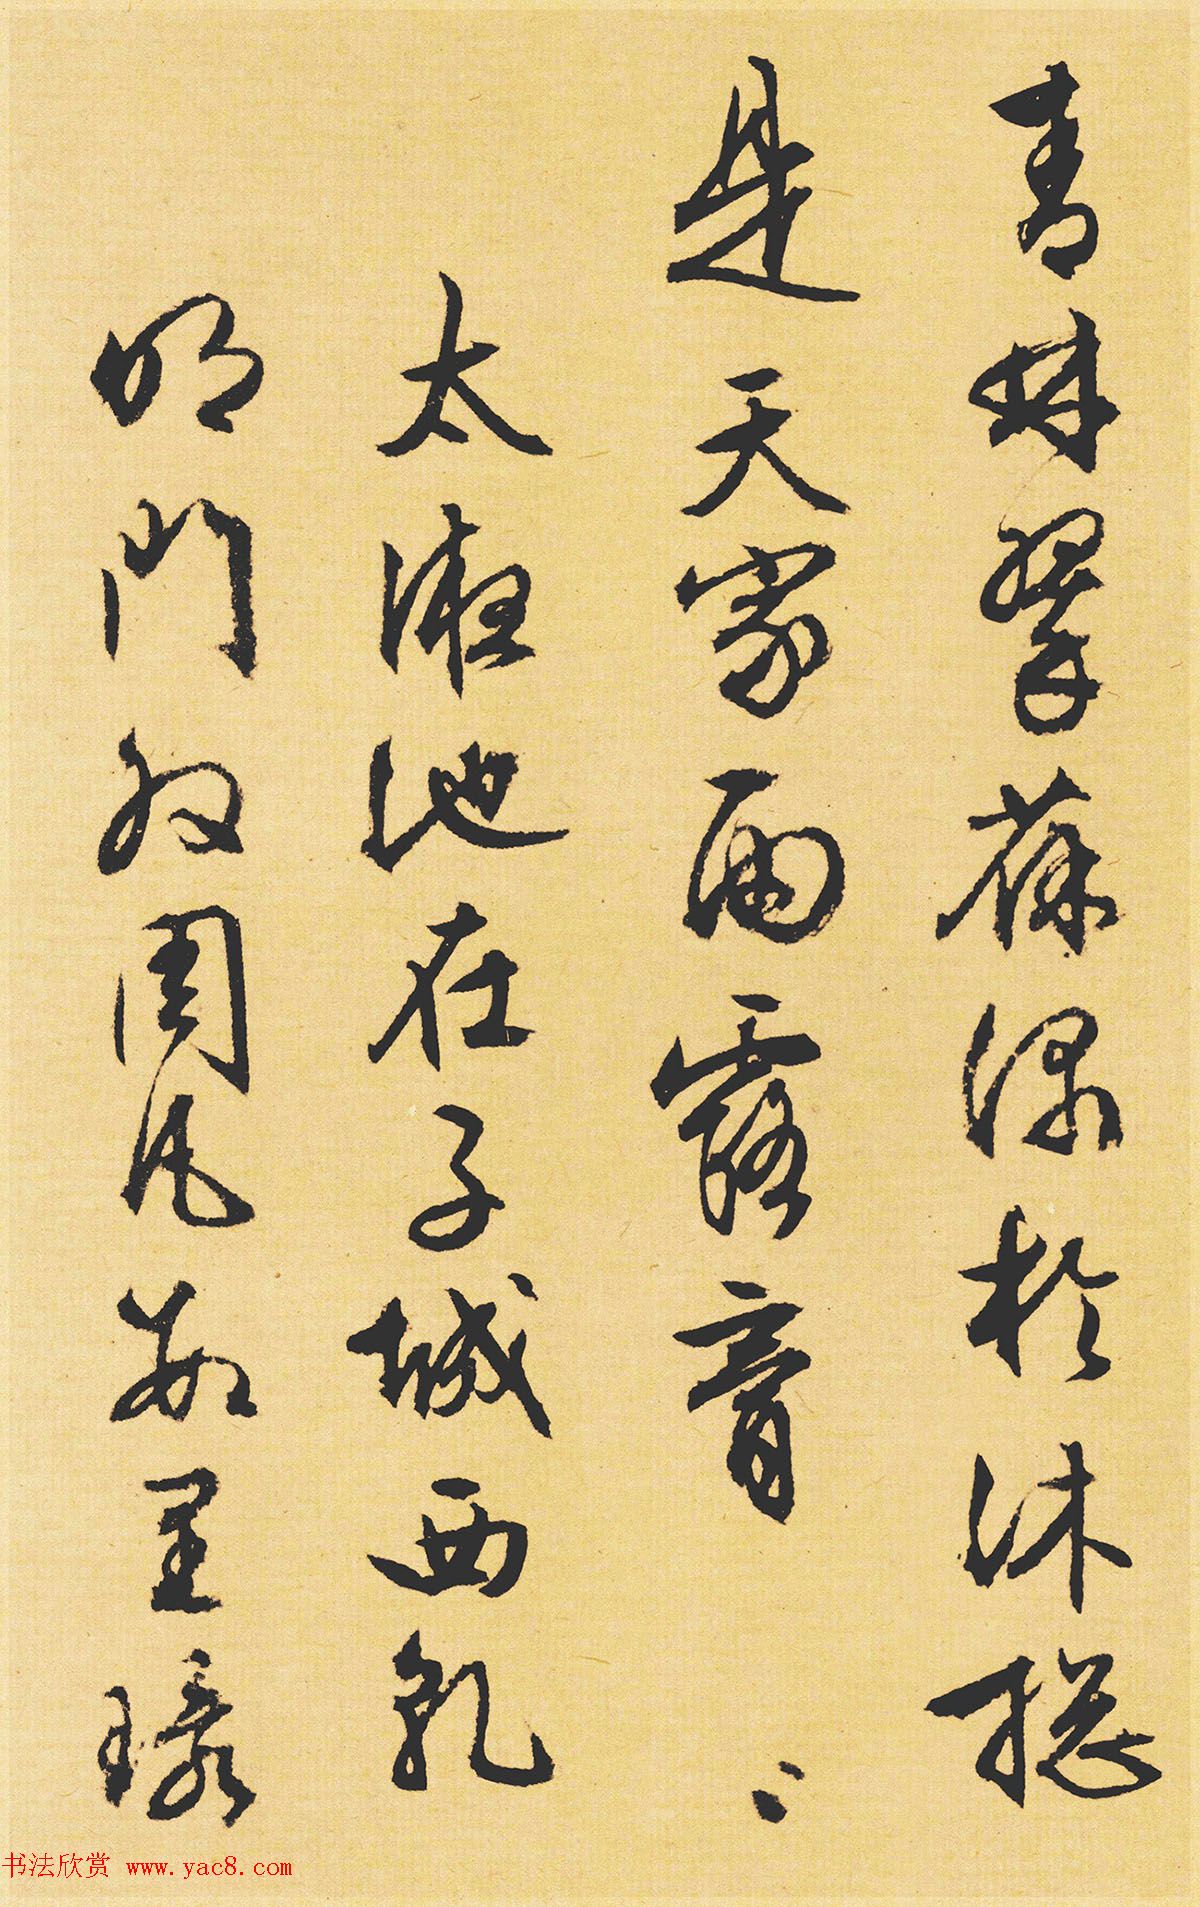 青林翠葆深於沐揔
是天家雨露膏〻
太液池在子城西乾
明門外周凡數里環
书法欣赏 www.yac8.com